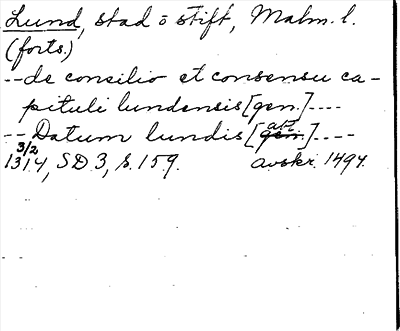 Lund, stad o stift, Malm. l.
(forts.)
-- de consilio et consensu ca-
pituli lundensis [gen.] ----
-- Datum lundis [gen. abl.] ----
3/2
1314, SD 3, s. 159. avskr. 1494.